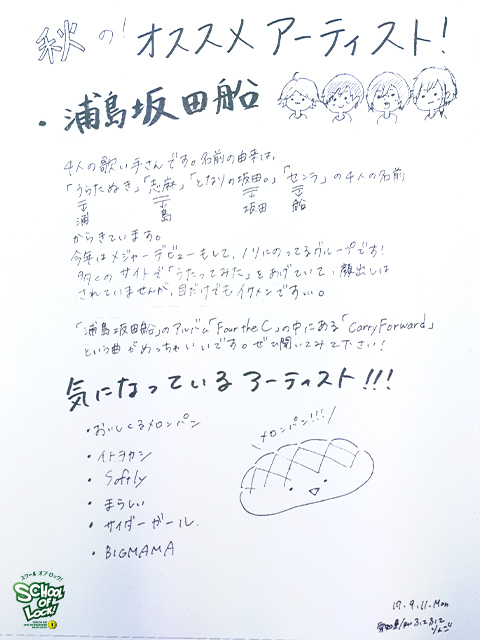 秋の!オススメアーティスト!
・浦島坂田船
4人の歌い手さんです。名前の由来は、
「うらたぬき」「志麻」「となりの坂田。」「センラ」の4人の名前
浦 島 坂田 船
からきています。
今年はメジャーデビューもして、ノリにのってるグループです!
多くのサイトで「うたってみた」をあげていて、顔出しは
されていませんが、目だけでもイケメンですい。
「浦島坂田船」のアルバム「Four the C」の中にある「Carry Forward」
という曲がめっちゃいいです。ぜひ聞いてみて下さい!
気になっているアーティスト!!!
・おいしくるメロンパン
・イトヲカシ
・Softly
・まらしい
・サイダーガール.
・BIGMAMA
メロンパン!!!
スクール オブ ロック!
SCHOOL OF LOCK!
17.9.11.Mon